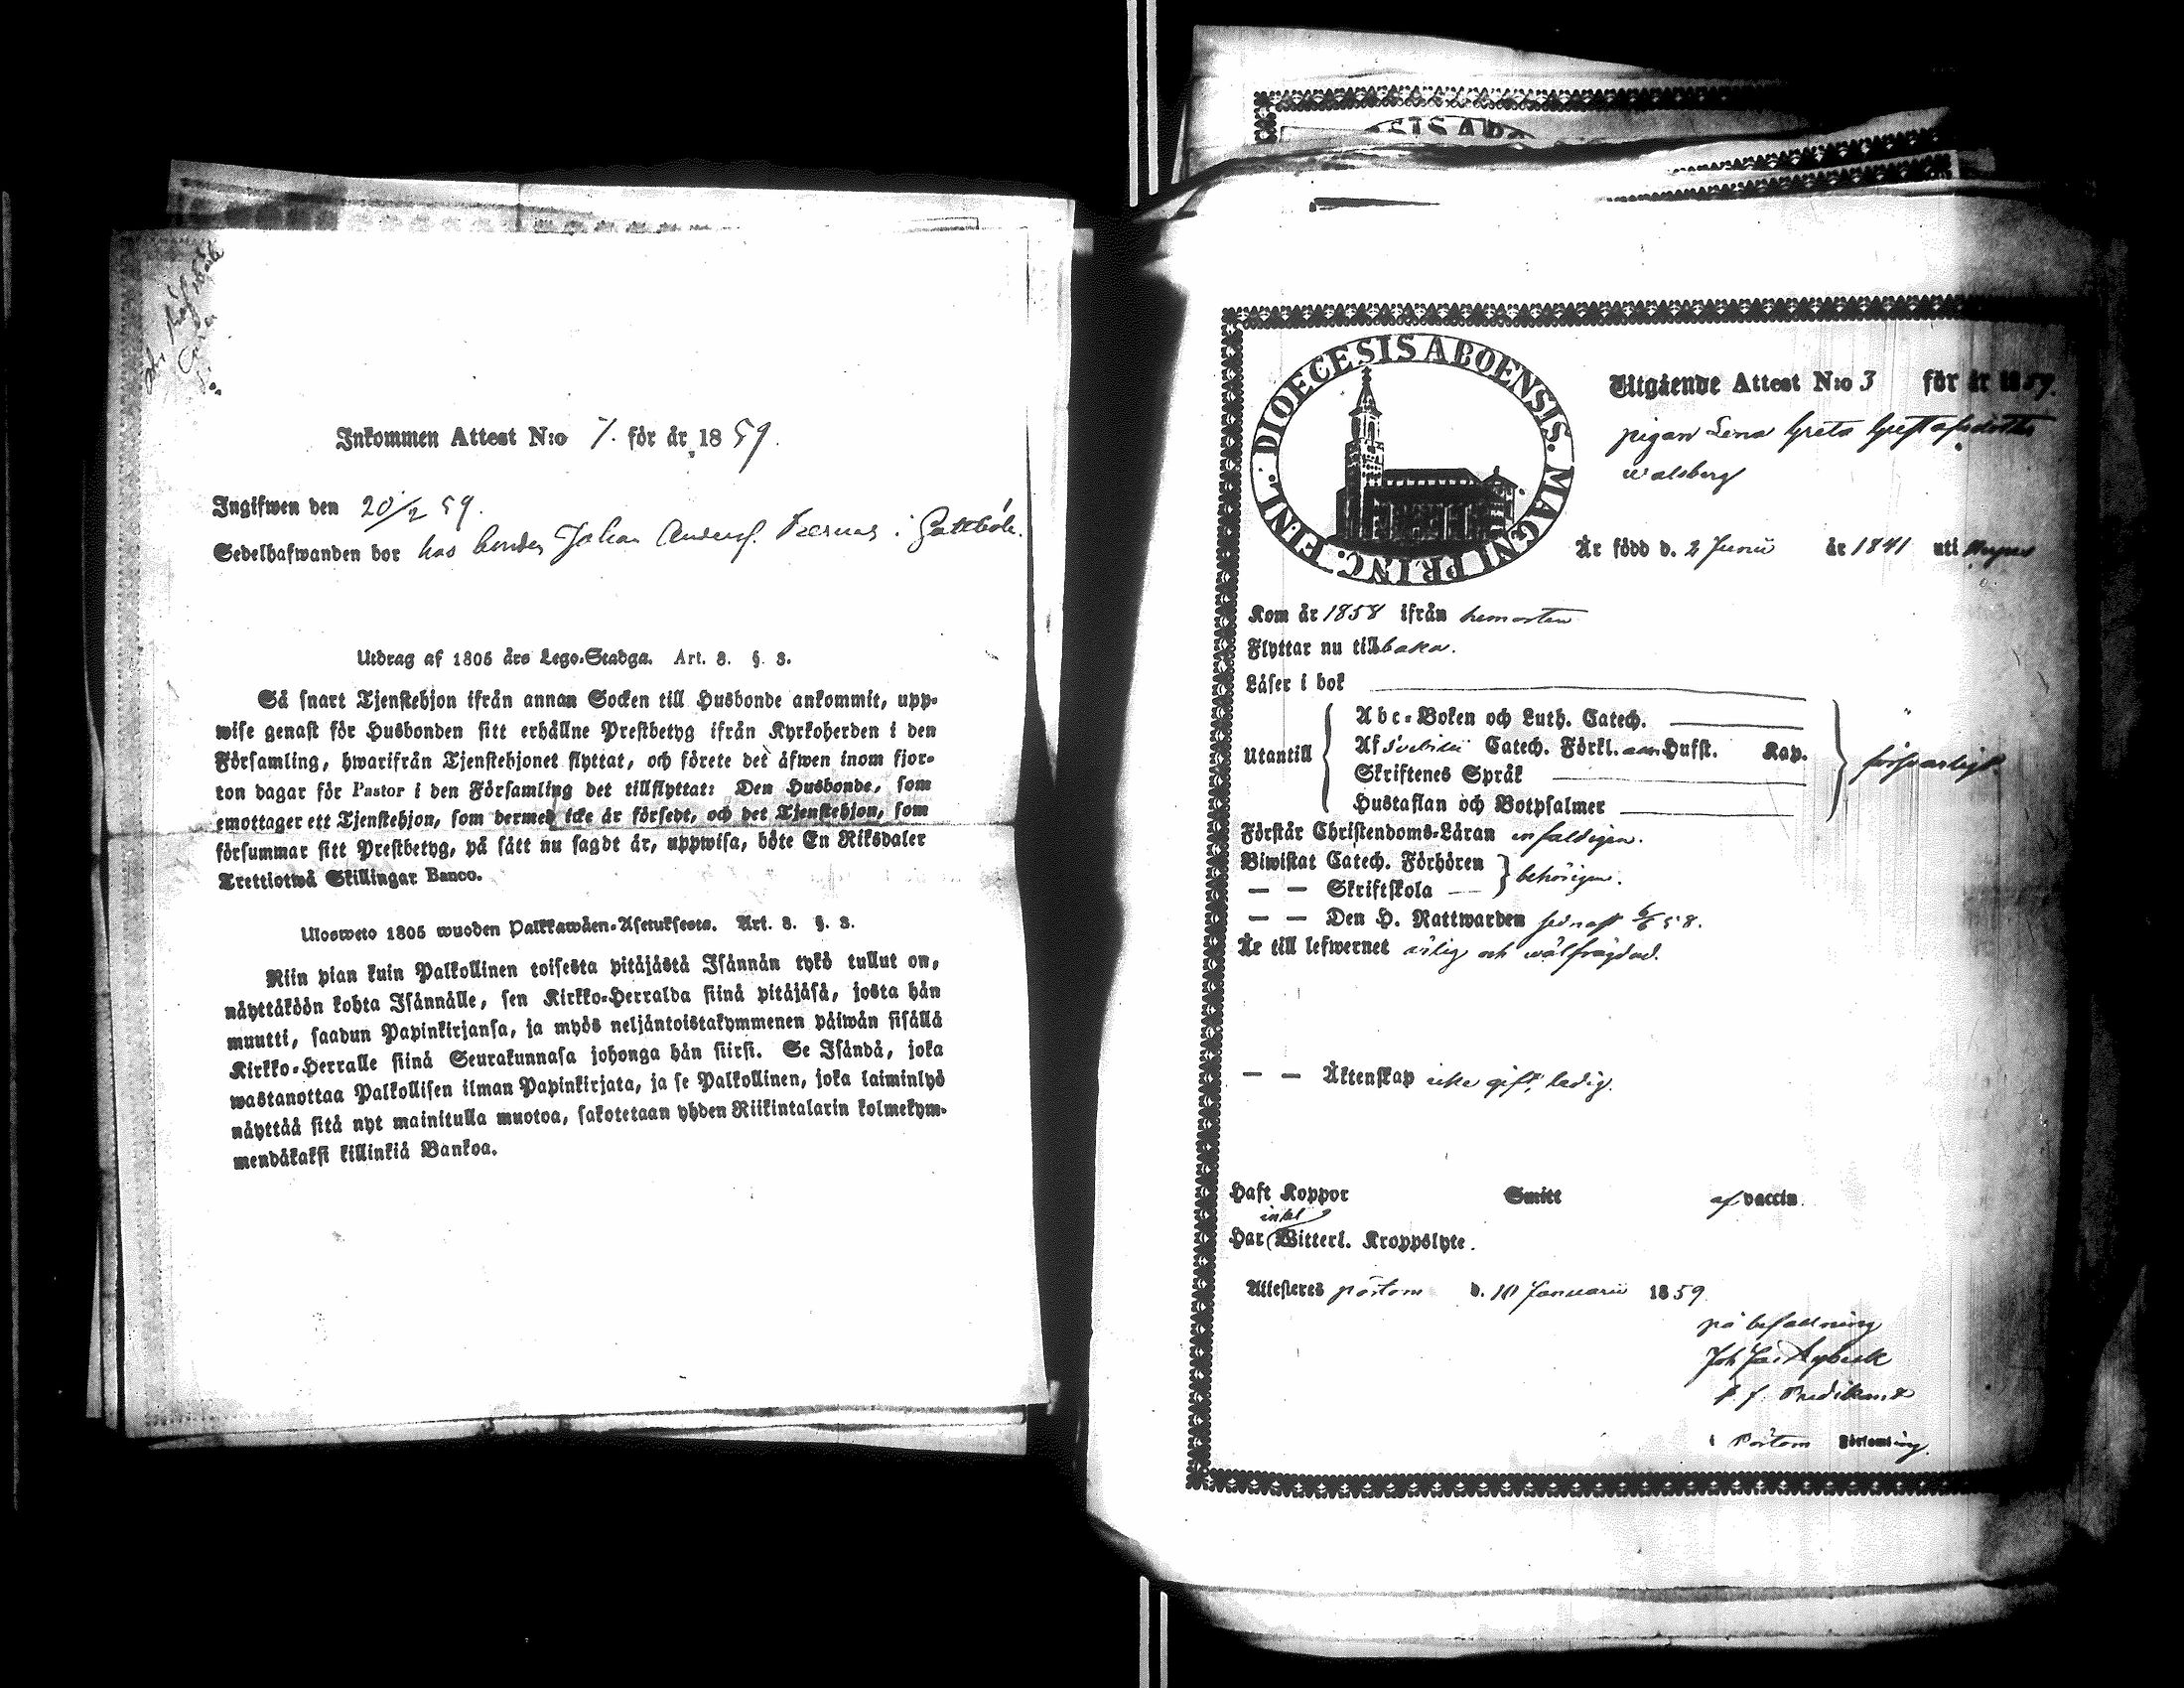 Inkommen Attest N:o 7. för år 1859.
Ingifwen den 20/2 59.
Sedelhafwanden bor hos bonden Johan Anders. i
Utdrag af 1805 års Lego-Stadga. Art. 3. §. 3.
Så snart Tjenstehjon ifrån annan Socken till Husbonde ankommit, upp-
wise genast för Husbonden sitt erhållne Prestbetyg ifrån Kyrkoherden i den
Församling, hwarifrån Tjenstehjonet flyttat, och förete det äfwen inom fjor-
ton dagar för Pastor i den Församling det tillflyttat: Den Husbonde, som
emottager ett Tjenstehjon, som dermed icke är försedt, och det Tjenstehjon, som
försummar sitt Prestbetyg, på sätt nu sagdt är, uppwisa, böte En Riksdaler
Trettiotwå Skillingar Banco.
Ulosweto 1805 wuoden Palkkawäen-Asetuksesta. Art. 3. §. 3.
Niin pian kuin Palkollinen toisesta pitäjästä Isännän tykö tullut on,
näyttäköön kohta Isännälle, sen Kirkko-Herralda siinä pitäjäsä, josta hän
muutti, saadun Papinkirjansa, ja myös neljäntoistakymmenen päiwän sisällä
Kirkko-Herralle siinä Seurakunnasa johonga hän siirsi. Se Isändä, joka
wastanottaa Palkollisen ilman Papinkirjata, ja se Palkollinen, joka laiminlyö
näyttää sitä nyt mainitulla muotoa, sakotetaan yhden Riikintalarin kolmekym-
mendäkaksi killinkiä Bankoa.
DIOECESIS ABOENSIS. MAGNI PRINC. FINL.
Utgående Attest N:o 3 för år 1859.
pigan Lena Greta Gustafsdotter
walsberg
Är född d. 2 Junii år 1841 uti
Kom år 1858 ifrån hemorten
Flyttar nu tillbaka.
Läser i bok
Utantill
Abc-Boken och Luth. Catech.
Af Svebilii Catech. Förkl. Hufst. Kap.
Skriftenes Språk
Hustaflan och Botpsalmer
försvarligt.
Förstår Christendoms-Läran enfaldigen.
Biwistat Catech. Förhören
— — Skriftskola — behörigen.
— — Den H. Nattwarden sednast 6/6 58.
Är till lefwernet ärlig och wälfrägdad.
— — Äktenskap icke gift, ledig.
Haft Koppor Smitt af vaccin.
intet
Har Witterl. Kroppslyte.
Attesteres Pörtom d. 10 Januarii 1859
på befallning
Joh Jac Nybeck
v. f. Predikant
i Pörtom Församling.